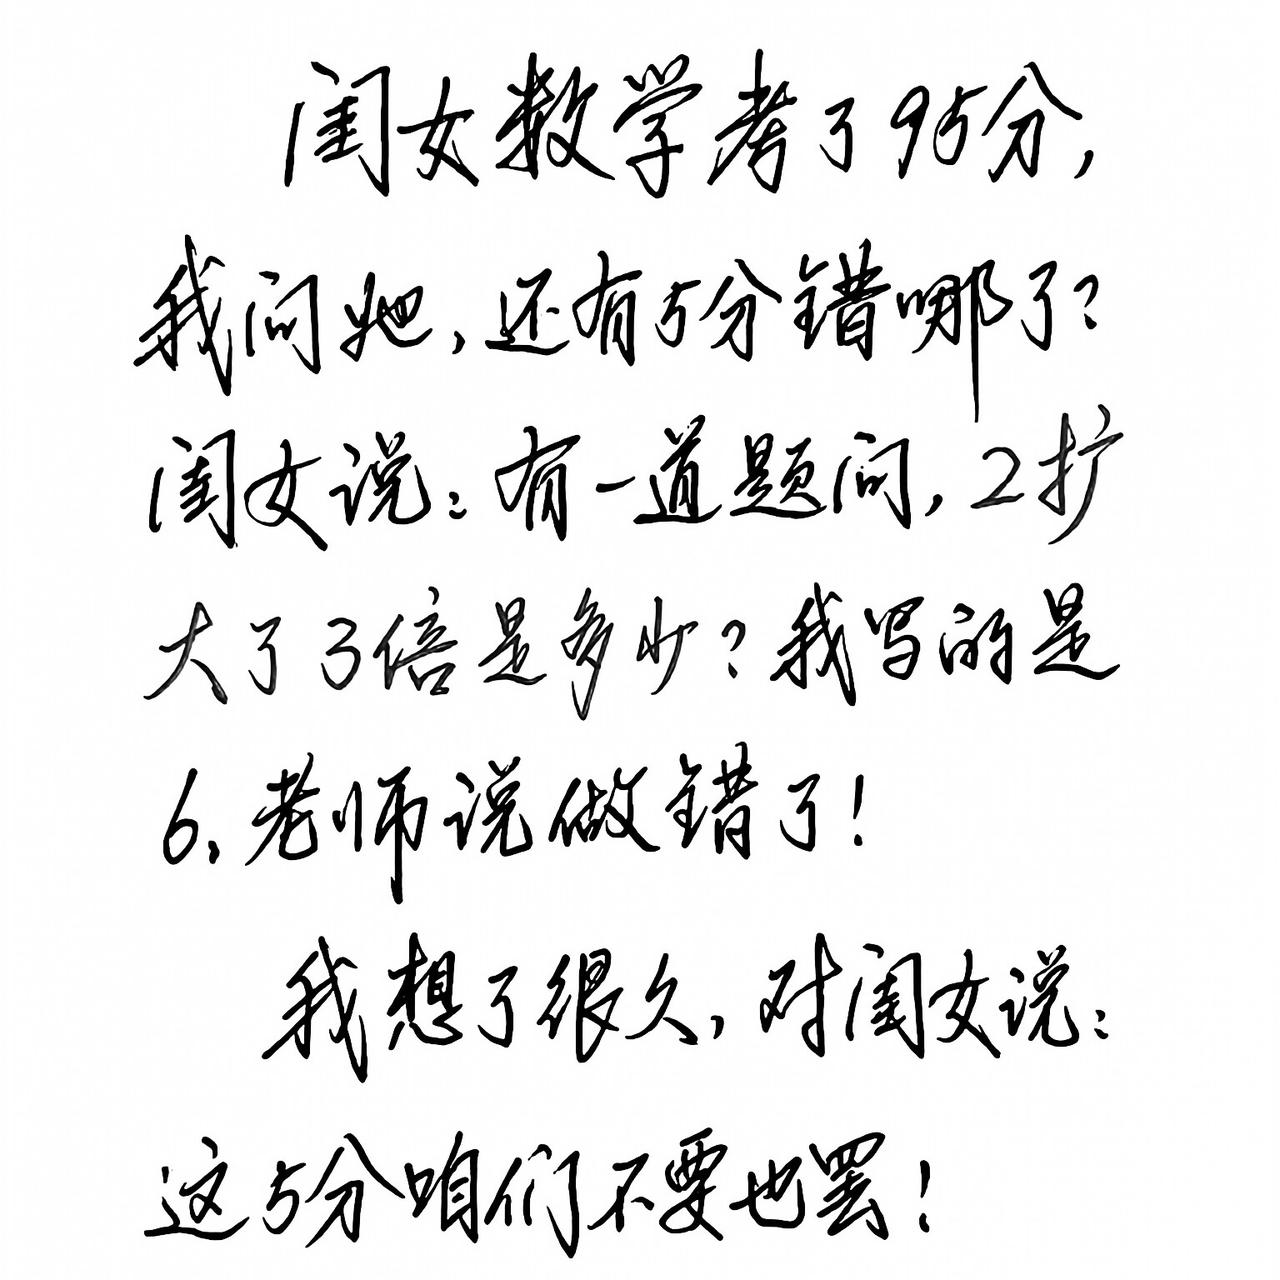 闺女数学考了95分,
我问她,还有5分错哪了?
闺女说:有一道题问,2扩
大了3倍是多少?我写的是
6,老师说做错了!
我想了很久,对闺女说:
这5分咱们不要也罢!